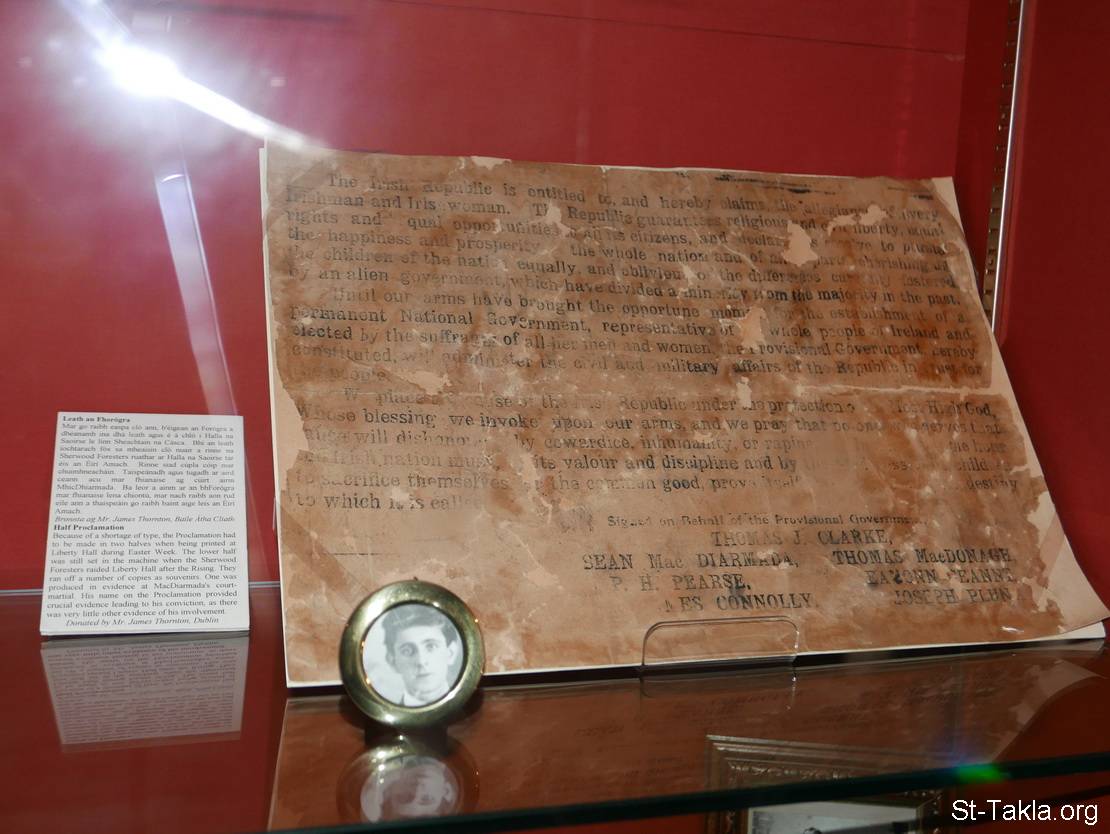 Leath an Fhorógra
Mar go raibh easpa cló ann, b'éigean an Forógra a
dhéanamh ina dhá leath agus é á chló i Halla na
Saoirse le linn Sheachtain na Cásca. Bhí an leath
íochtarach fós sa mheaisín cló nuair a rinne na
Sherwood Foresters ruathar ar Halla na Saoirse tar
éis an Éirí Amach. Rinne siad cúpla cóip mar
chuimhneacháin. Taispeánadh agus tugadh ar aird
ceann acu mar fhianaise ag cúirt airm
MhicDhiarmada. Ba leor a ainm ar an bhForógra
mar fhianaise lena chiontú, mar nach raibh aon rud
eile ann a thaispeáin go raibh baint aige leis an Éirí
Amach.
Bronnta ag Mr. James Thornton, Baile Átha Cliath
Half Proclamation
Because of a shortage of type, the Proclamation had
to be made in two halves when being printed at
Liberty Hall during Easter Week. The lower half
was still set in the machine when the Sherwood
Foresters raided Liberty Hall after the Rising. They
ran off a number of copies as souvenirs. One was
produced in evidence at MacDiarmada's court-
martial. His name on the Proclamation provided
crucial evidence leading to his conviction, as there
was very little other evidence of his involvement
Donated by Mr. James Thornton, Dublin
The Irish Republic is entitled to, and hereby claims, the allegiance of every
Irishman and Irishwoman. The Republic guarantees religious and civil liberty, equal
rights and equal opportunities to all its citizens, and declares to pursue
the happiness and prosperity the whole nation and of all cherishing all
the children of the nation equally, and oblivious of the differences carefully fostered
by an alien government, which have divided a minority from the majority in the past.
Until our arms have brought the opportune moment for the establishment of a
permanent National Government, representative of whole people of Ireland and
elected by the suffrages of all her men and women, the Provisional Government, hereby
constituted, will administer the civil and military affairs of the Republic in trust for
the people.
We place cause of the Irish Republic under the protection Most High God,
Whose blessing we invoke upon our arms, and we pray that no one serves that
cause will dishonour by cowardice, inhumanity, or rapine
Irish nation must its valour and discipline and by
to sacrifice themselves the common good, prove itself destiny
to which it is called
Signed on Behalf of the Provisional Government,
THOMAS J. CLARKE,
SEAN Mac DIARMADA, THOMAS MacDONAGH
P. H. PEARSE, EAMONN CEANNT
CONNOLLY, JOSEPH PLUN
St-Takla.org